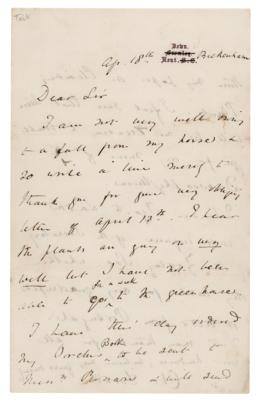 Down.
Bromley.
Kent. S.E.
Beckenham
Ap. 18th
Dear Sir
I am not very well owing
to a fall from my horse &
so write a line merely to
thank you for your very obliging
letter of April 13th. I hear
the plants are going on very
well but I have not been
for a week
able to go to the greenhouse
I have this day ordered
my Orchis Book to be sent to
Mess